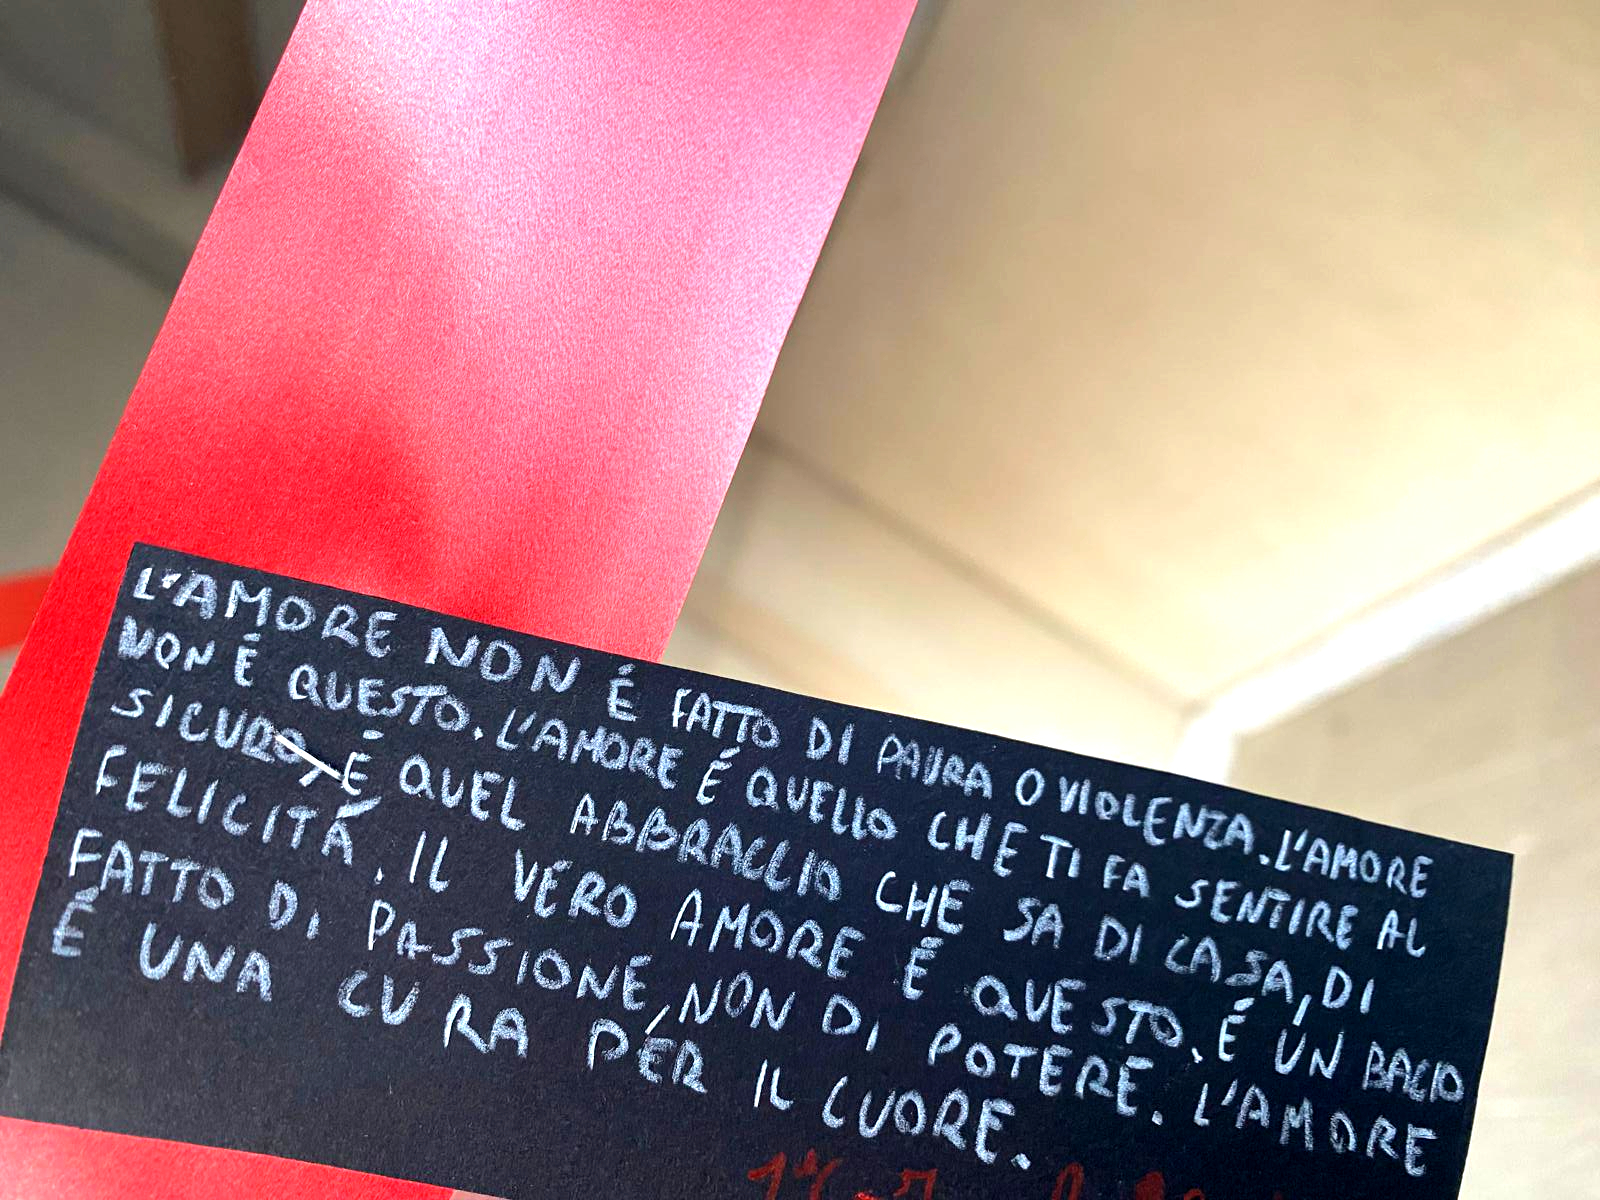 L'AMORE NON É FATTO DI PAURA O VIOLENZA. L'AMORE
NON É QUESTO. L'AMORE É QUELLO CHE TI FA SENTIRE AL
SICURO, É QUEL ABBRACCIO CHE SA DI CASA, DI
FELICITÁ. IL VERO AMORE É QUESTO. É UN BACIO
FATTO DI PASSIONE, NON DI POTERE. L'AMORE
É UNA CURA PER IL CUORE.